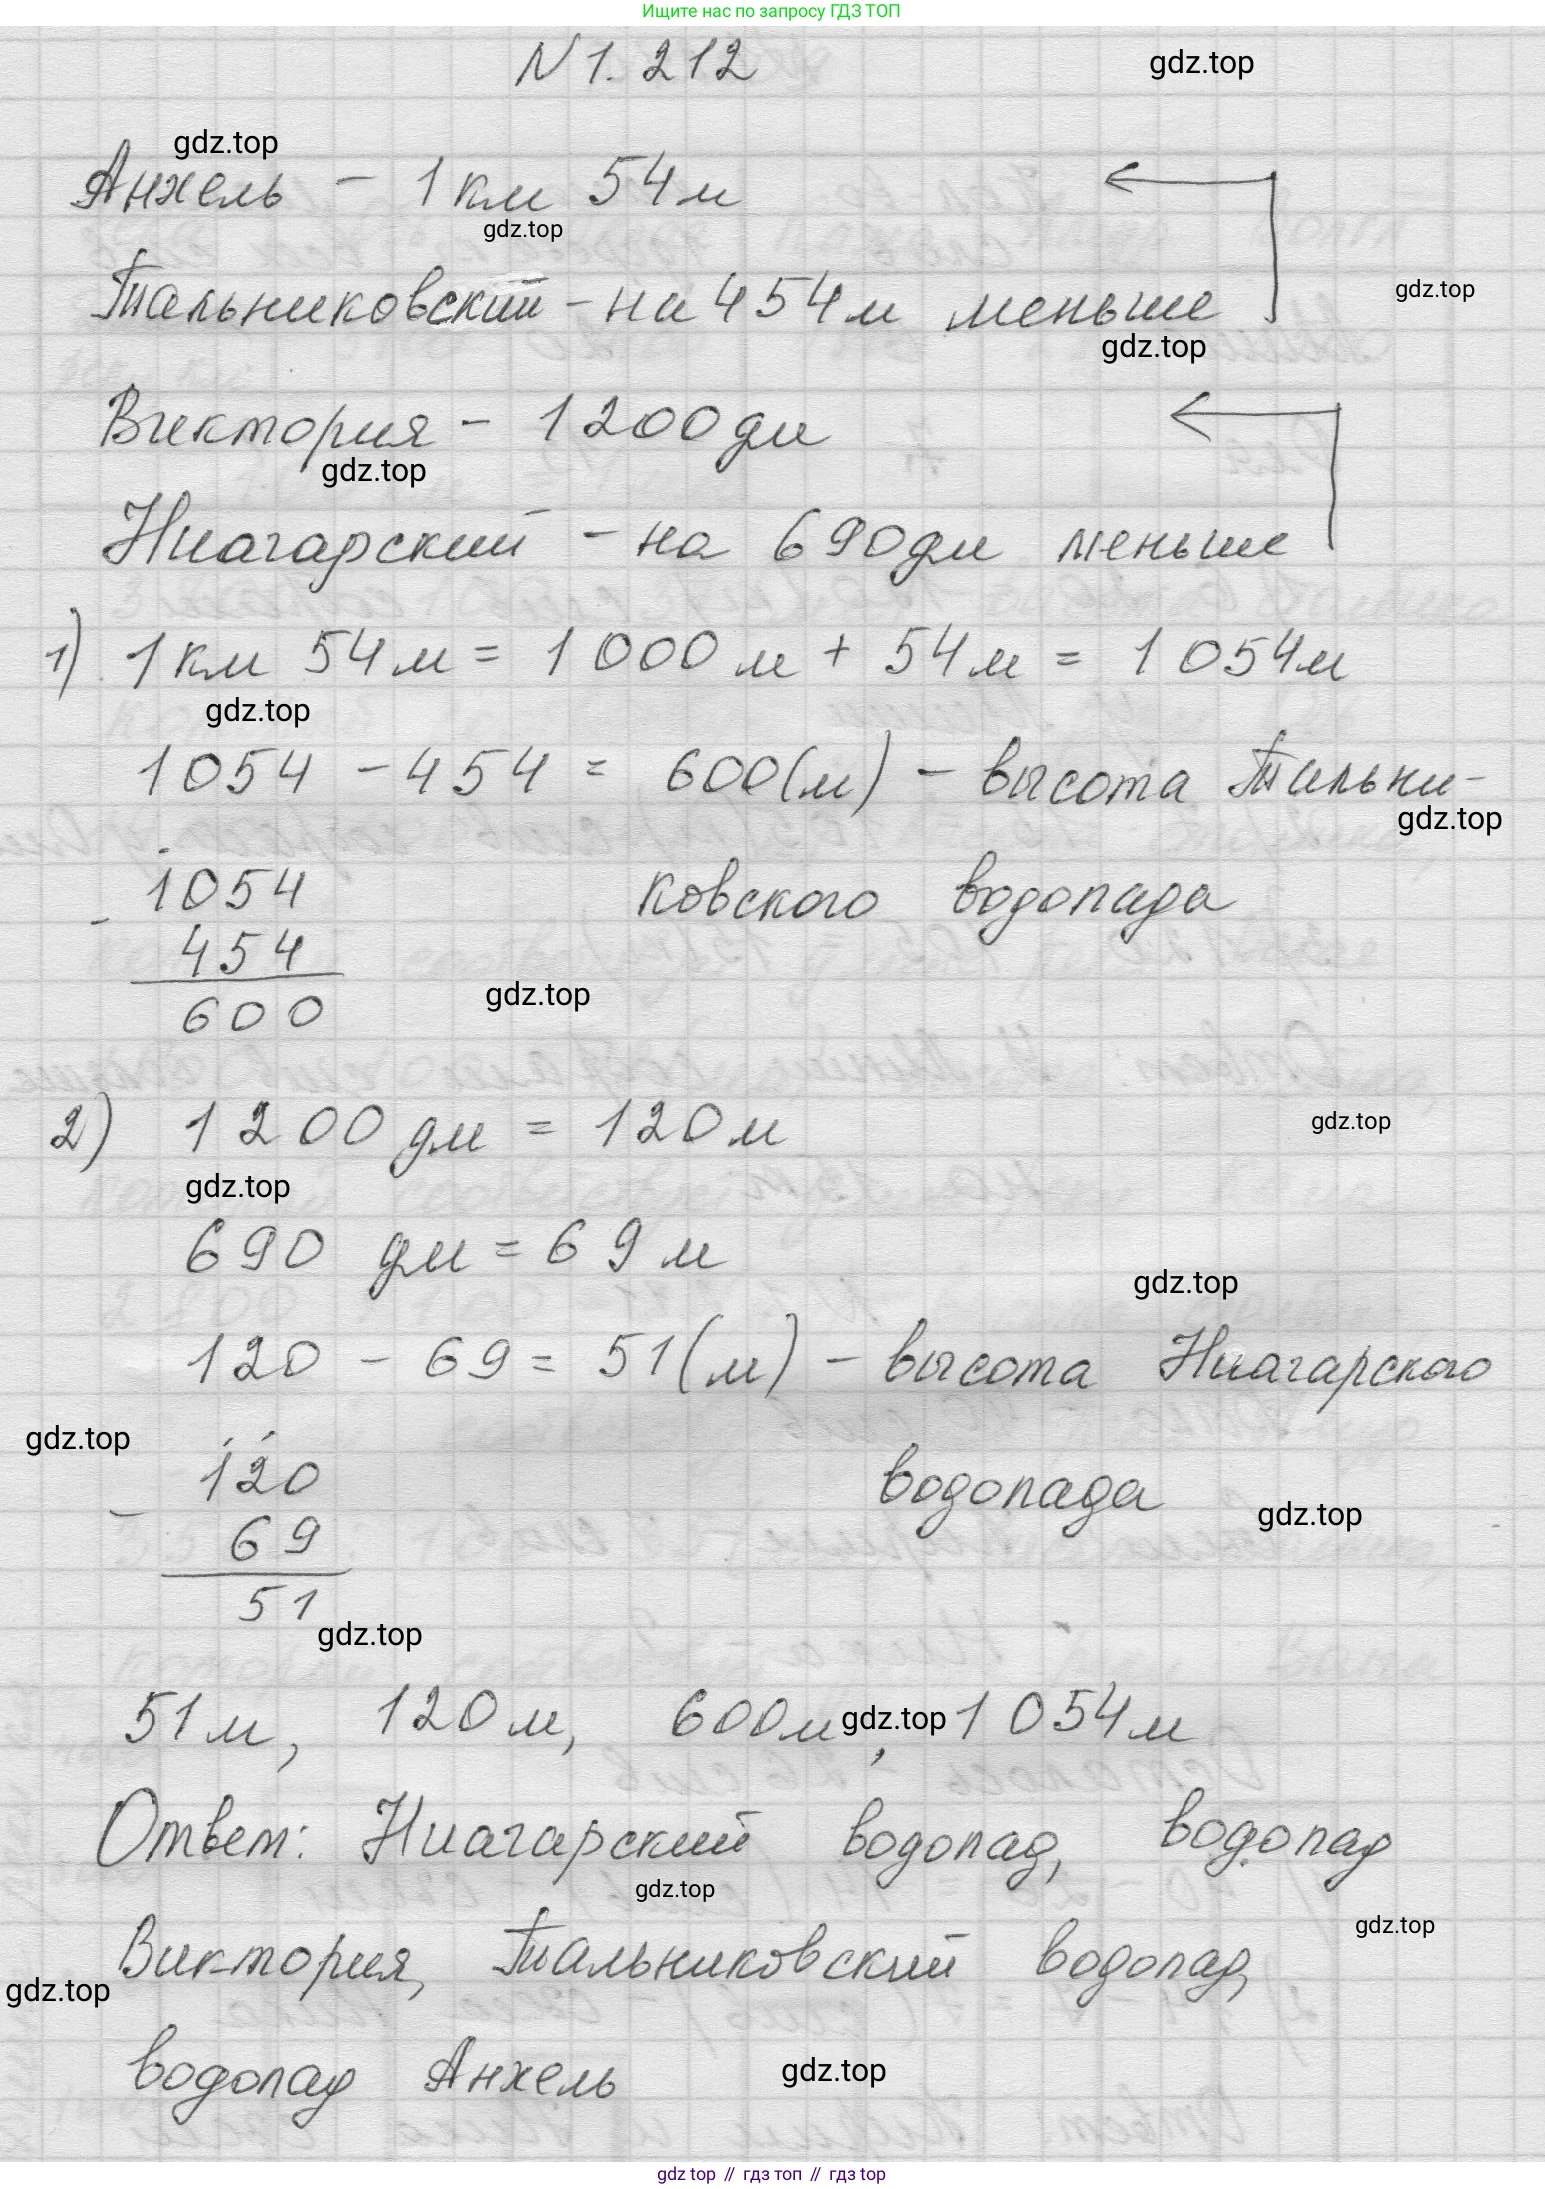 Ищите нас по запросу ГДЗ ТОП
N 1. 212
gdz.top
gdz.top
Анхель - 1 км 54 м
gdz.top
Тальниковский - на 454 м меньше
gdz.top
gdz.top
Виктория - 1200 дм
gdz.top
Ниагарский - на 690 дм меньше
1) 1 км 54 м = 1 000 м + 54 м = 1 054 м
gdz.top
1054 - 454 = 600 (м) - высота Тальни-
gdz.top
1054
ковского водопада
-
454
600
gdz.top
2) 1 200 дм = 120 м
gdz.top
gdz.top
690 дм = 69 м
gdz.top
120 - 69 = 51 (м) - высота Ниагарского
gdz.top
120
водопада
gdz.top
-
69
51
gdz.top
51 м, 120 м, 600 м, 1 054 м
gdz.top
Ответ: Ниагарский водопад, водопад
gdz.top
gdz.top
Виктория, Тальниковский водопад,
gdz.top
водопад Анхель
gdz.top
gdz top // гдз топ // гдз top